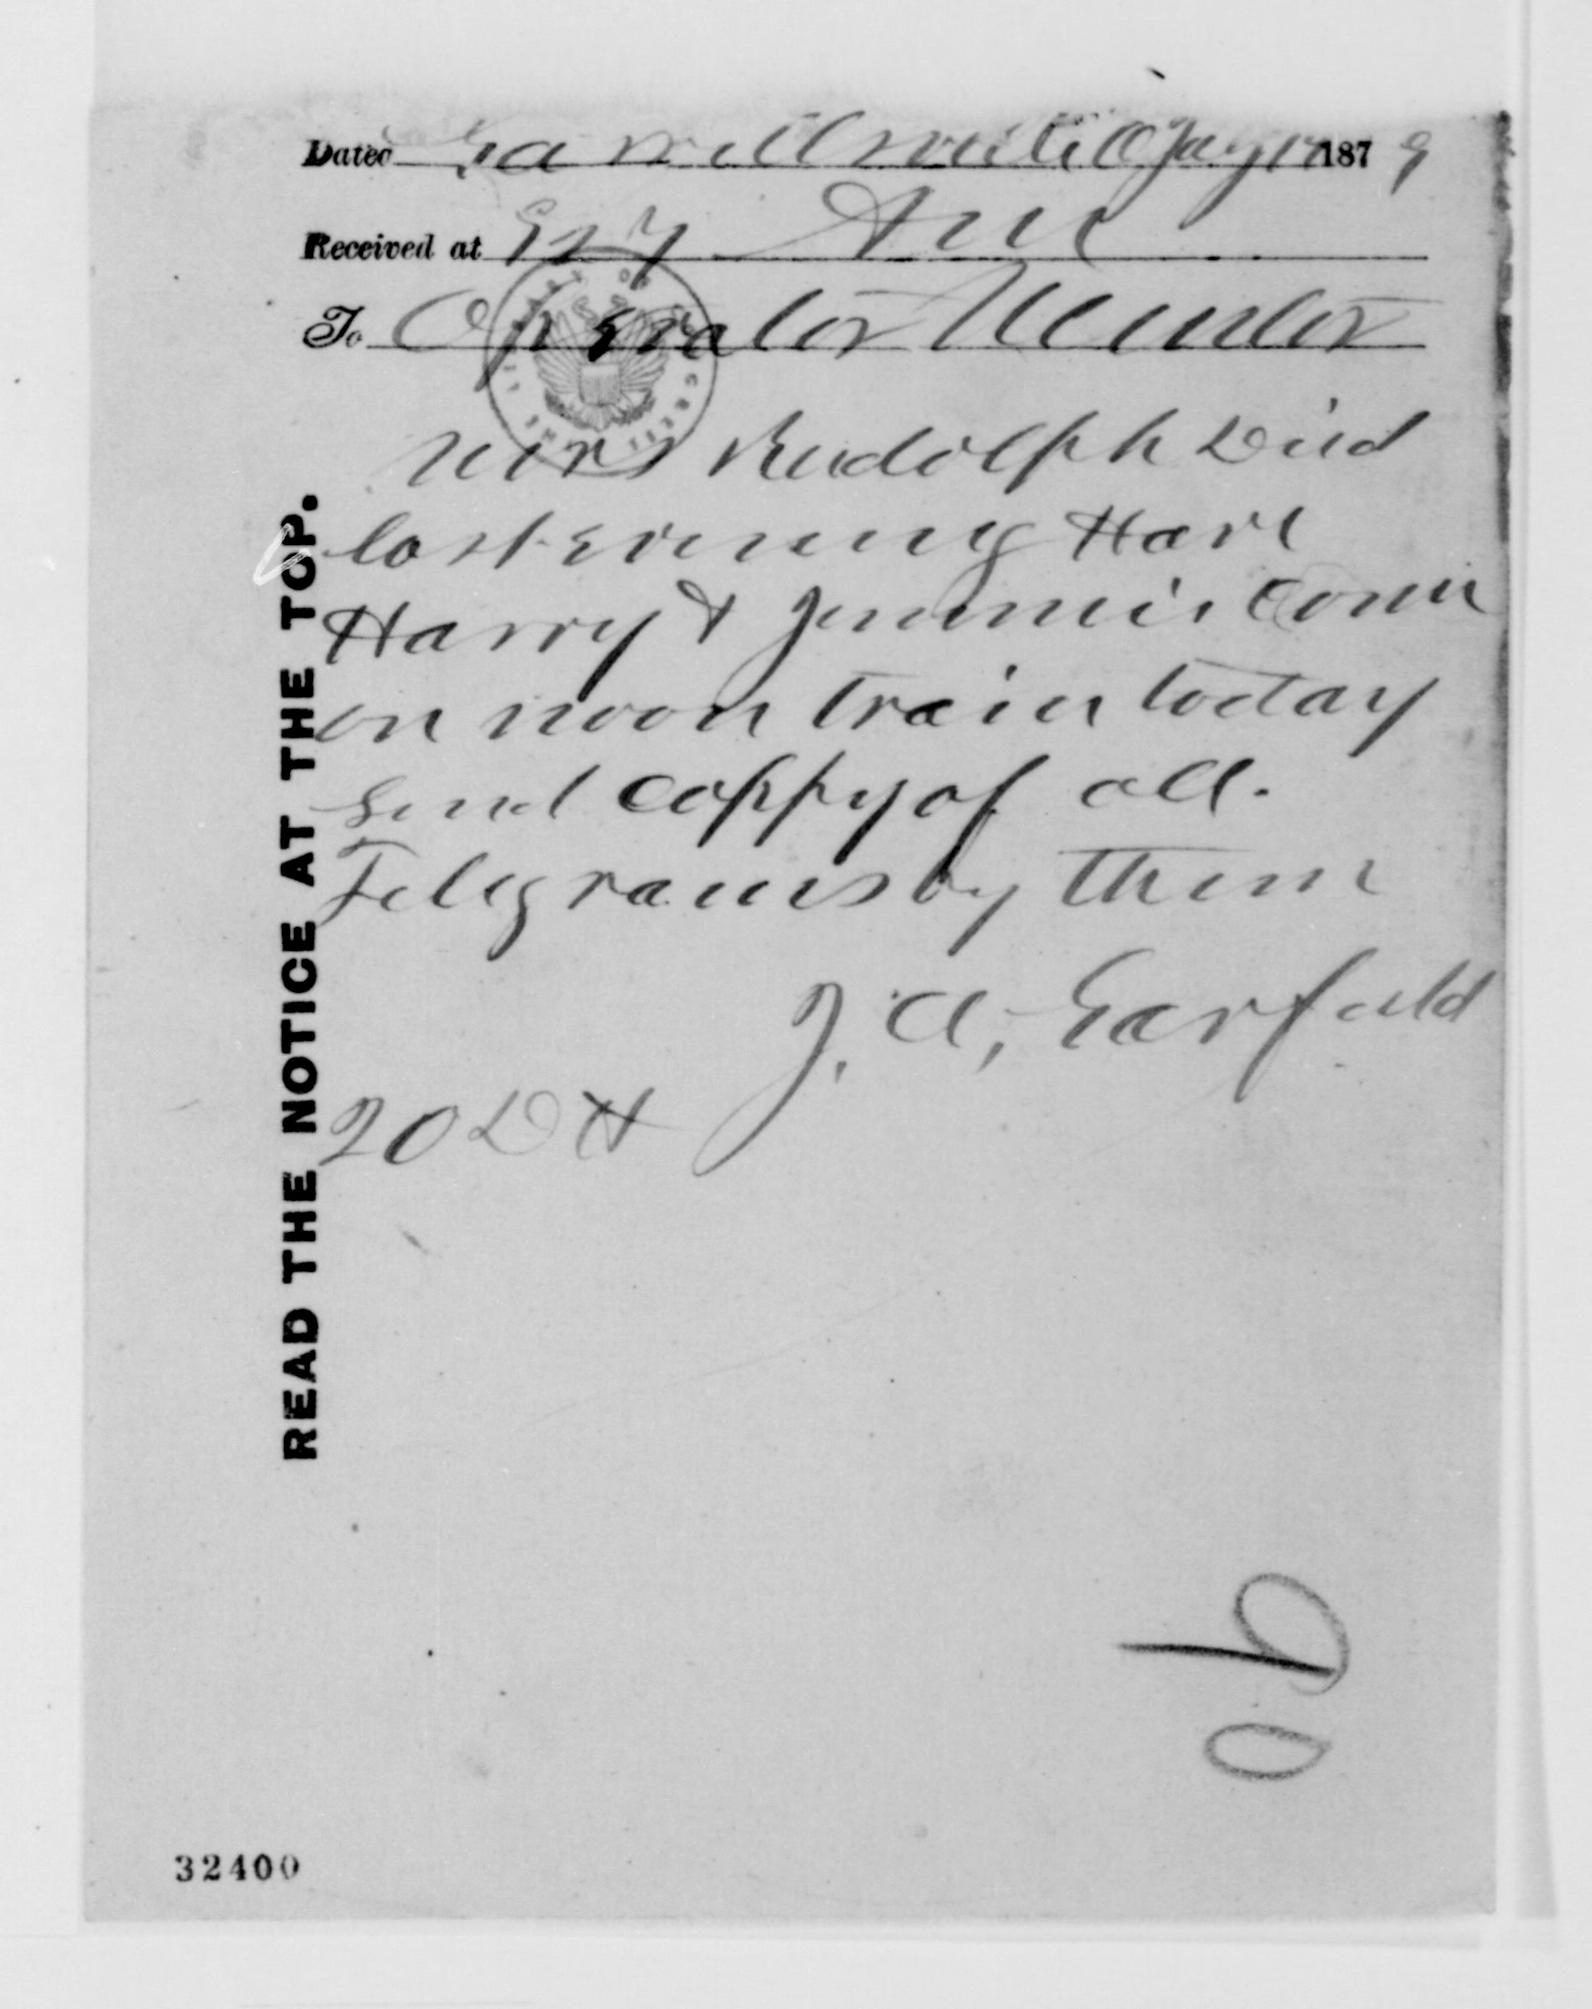 Dated Garrettsville O 187 9
Received at Aug
To Operator Mentor
Mrs Rudolph Died
last evening Have
Harry & Jimmie come
on noon train today
send coppy of all.
Telegrams by them
J. A. Garfield
20 DH
READ THE NOTICE AT THE TOP.
32400